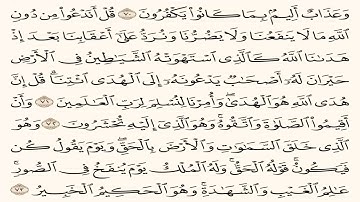 وَعَذَابٌ أَلِيمٌۢ بِمَا كَانُوا۟ يَكْفُرُونَ ٧٠ قُلْ أَنَدْعُوا۟ مِن دُونِ
ٱللَّهِ مَا لَا يَنفَعُنَا وَلَا يَضُرُّنَا وَنُرَدُّ عَلَىٰٓ أَعْقَابِنَا بَعْدَ إِذْ
هَدَىٰنَا ٱللَّهُ كَٱلَّذِى ٱسْتَهْوَتْهُ ٱلشَّيَٰطِينُ فِى ٱلْأَرْضِ
حَيْرَانَ لَهُۥٓ أَصْحَٰبٌ يَدْعُونَهُۥٓ إِلَى ٱلْهُدَى ٱئْتِنَا ۗ قُلْ إِنَّ
هُدَى ٱللَّهِ هُوَ ٱلْهُدَىٰ ۖ وَأُمِرْنَا لِنُسْلِمَ لِرَبِّ ٱلْعَٰلَمِينَ ٧١ وَأَنْ
أَقِيمُوا۟ ٱلصَّلَوٰةَ وَٱتَّقُوهُ ۚ وَهُوَ ٱلَّذِىٓ إِلَيْهِ تُحْشَرُونَ ٧٢ وَهُوَ
ٱلَّذِى خَلَقَ ٱلسَّمَٰوَٰتِ وَٱلْأَرْضَ بِٱلْحَقِّ ۖ وَيَوْمَ يَقُولُ كُن
فَيَكُونُ ۚ قَوْلُهُ ٱلْحَقُّ ۚ وَلَهُ ٱلْمُلْكُ يَوْمَ يُنفَخُ فِى ٱلصُّورِ ۚ
عَٰلِمُ ٱلْغَيْبِ وَٱلشَّهَٰدَةِ ۚ وَهُوَ ٱلْحَكِيمُ ٱلْخَبِيرُ ٧٣